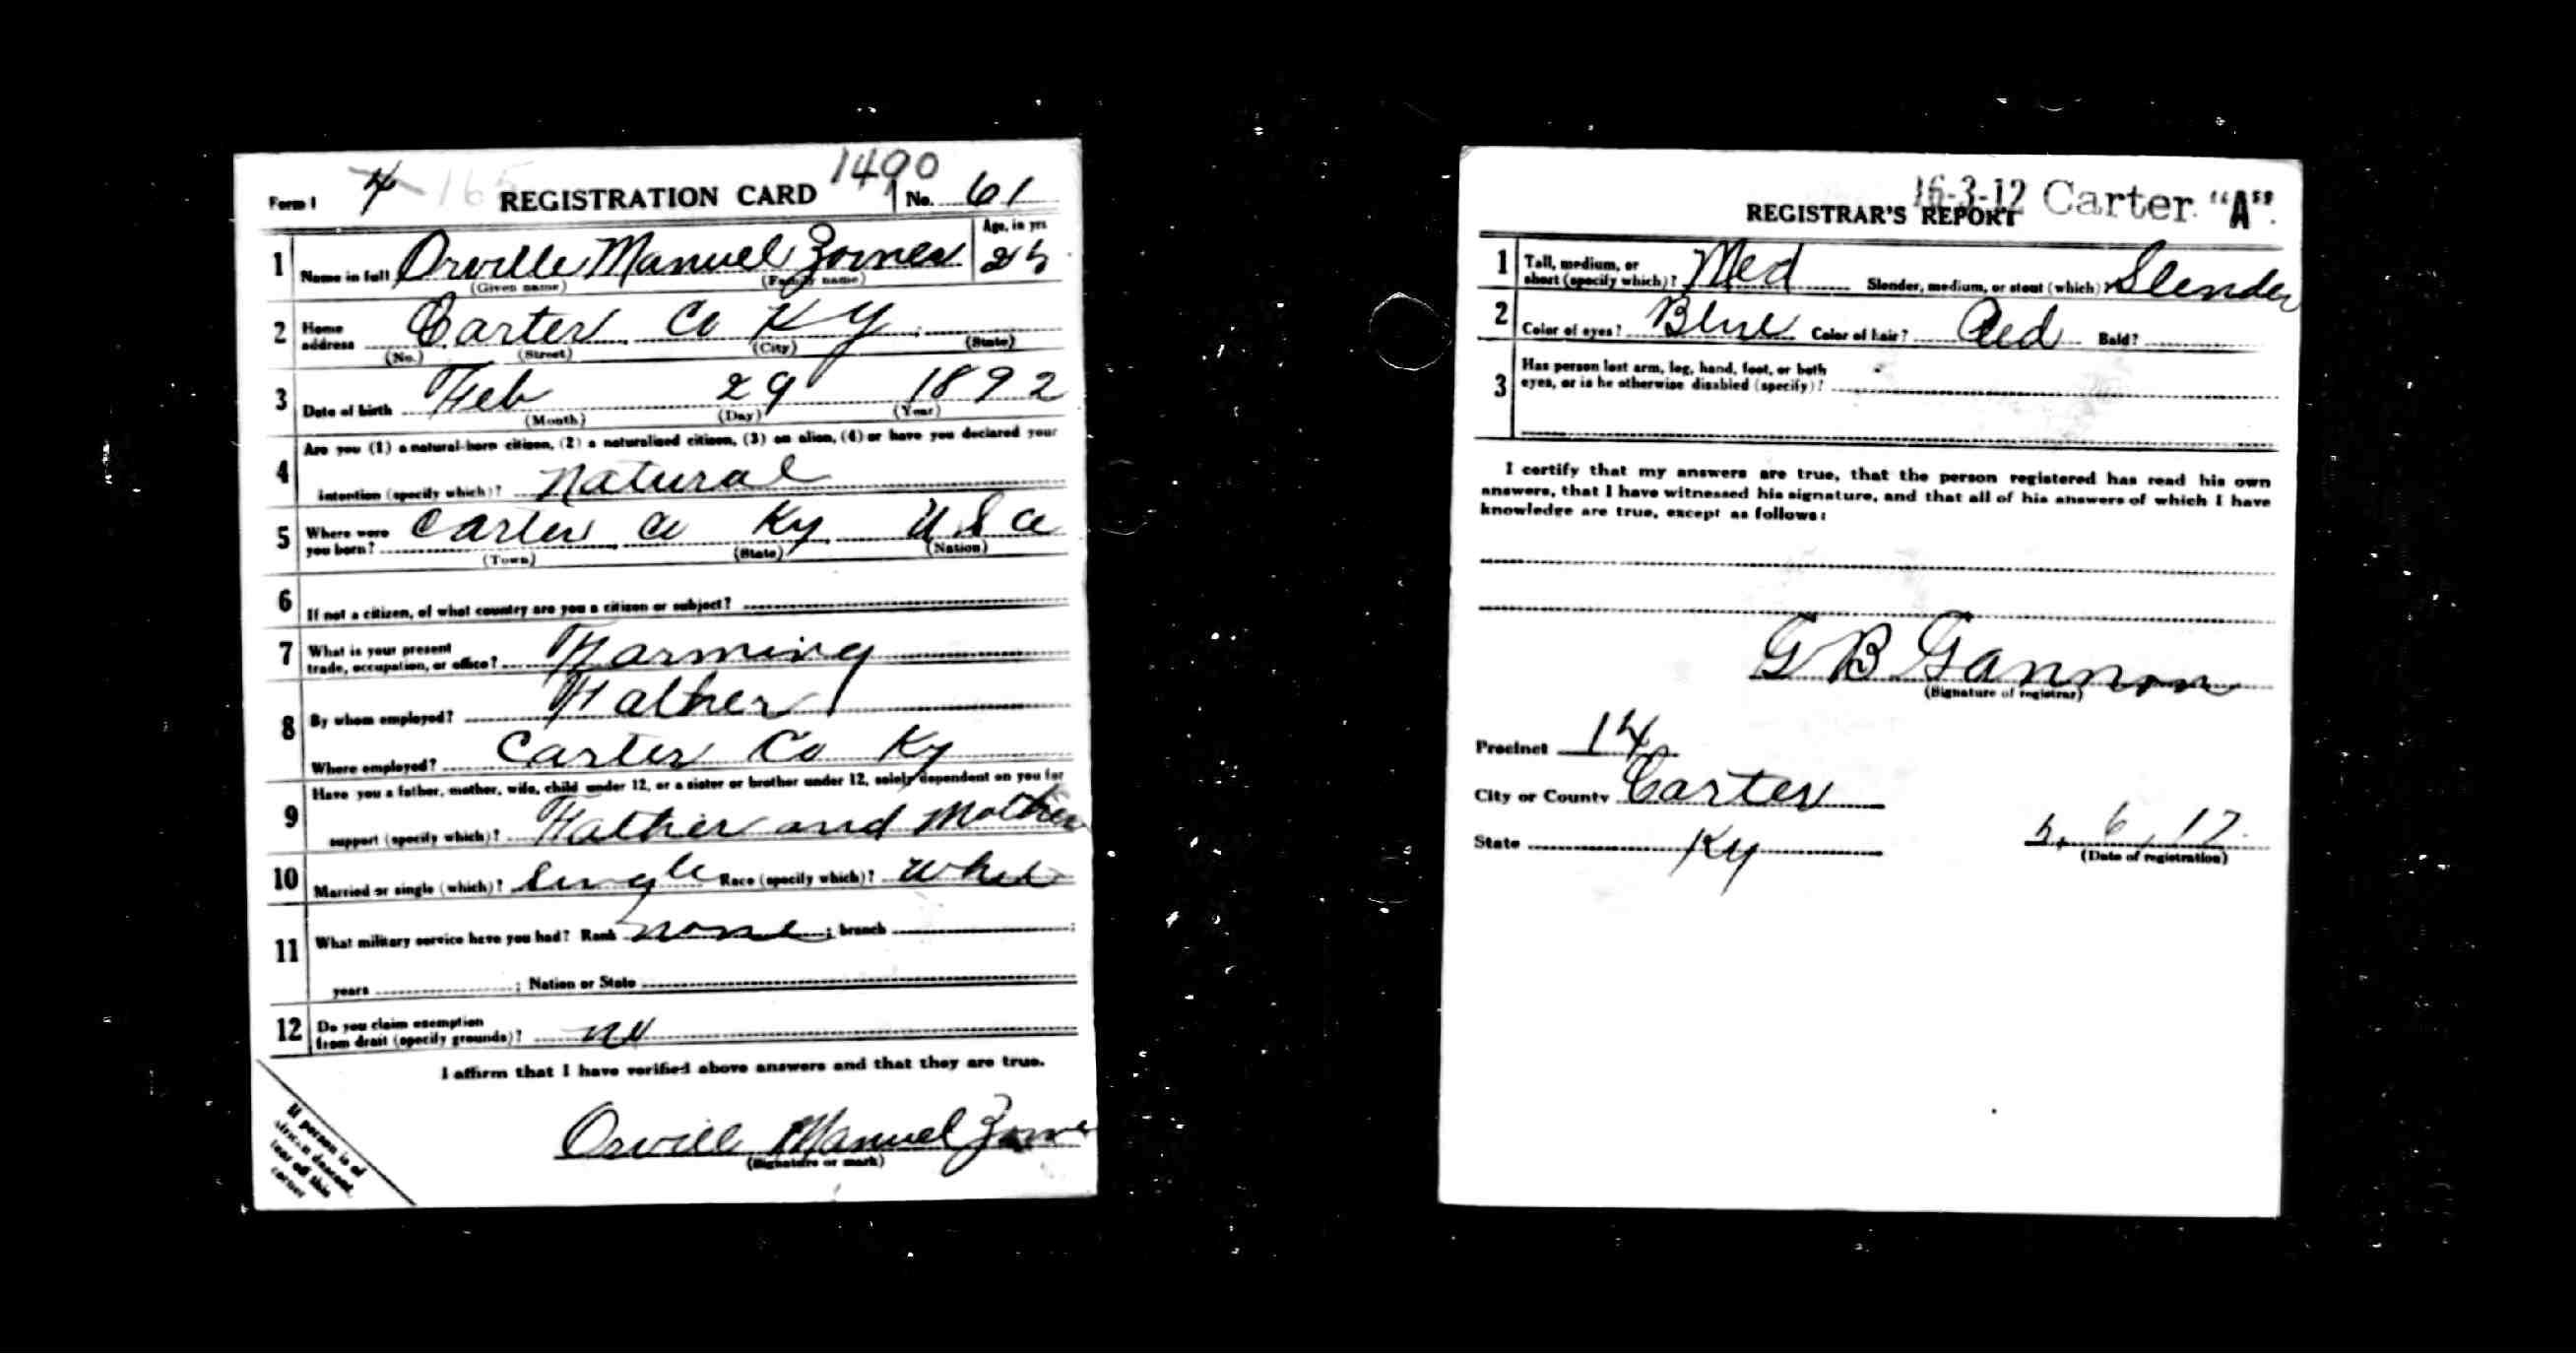 1490
Form 1 4 165 REGISTRATION CARD No. 61
1 Name in full Orville Manuel Zornes Age, in yrs 25
(Given name) (Family name)
2 Home address Carter Co Ky
(No.) (Street) (City) (State)
3 Date of birth Feb 29 1892
(Month) (Day) (Year)
4 Are you (1) a natural-born citizen, (2) a naturalized citizen, (3) an alien, (4) or have you declared your
intention (specify which)? Natural
5 Where were you born? Carter Co Ky U S a
(Town) (State) (Nation)
6 If not a citizen, of what country are you a citizen or subject?
7 What is your present trade, occupation, or office? Farming
8 By whom employed? Father
Where employed? Carter Co Ky
9 Have you a father, mother, wife, child under 12, or a sister or brother under 12, solely dependent on you for
support (specify which)? Father and Mother
10 Married or single (which)? Single Race (specify which)? Whit
11 What military service have you had? Rank none ; branch ;
years ; Nation or State
12 Do you claim exemption from draft (specify grounds)? no
I affirm that I have verified above answers and that they are true.
Orvill Manuel Zornes
(Signature or mark)
If person is of
African descent,
tear off this
corner
16-3-12 Carter "A".
REGISTRAR'S REPORT
1 Tall, medium, or short (specify which)? Med Slender, medium, or stout (which)? Slender
2 Color of eyes? Blue Color of hair? Red Bald?
3 Has person lost arm, leg, hand, foot, or both
eyes, or is he otherwise disabled (specify)?
I certify that my answers are true, that the person registered has read his own
answers, that I have witnessed his signature, and that all of his answers of which I have
knowledge are true, except as follows:
G B Gannon
(Signature of registrar)
Precinct 14
City or County Carter
State Ky 5, 6, 17
(Date of registration)